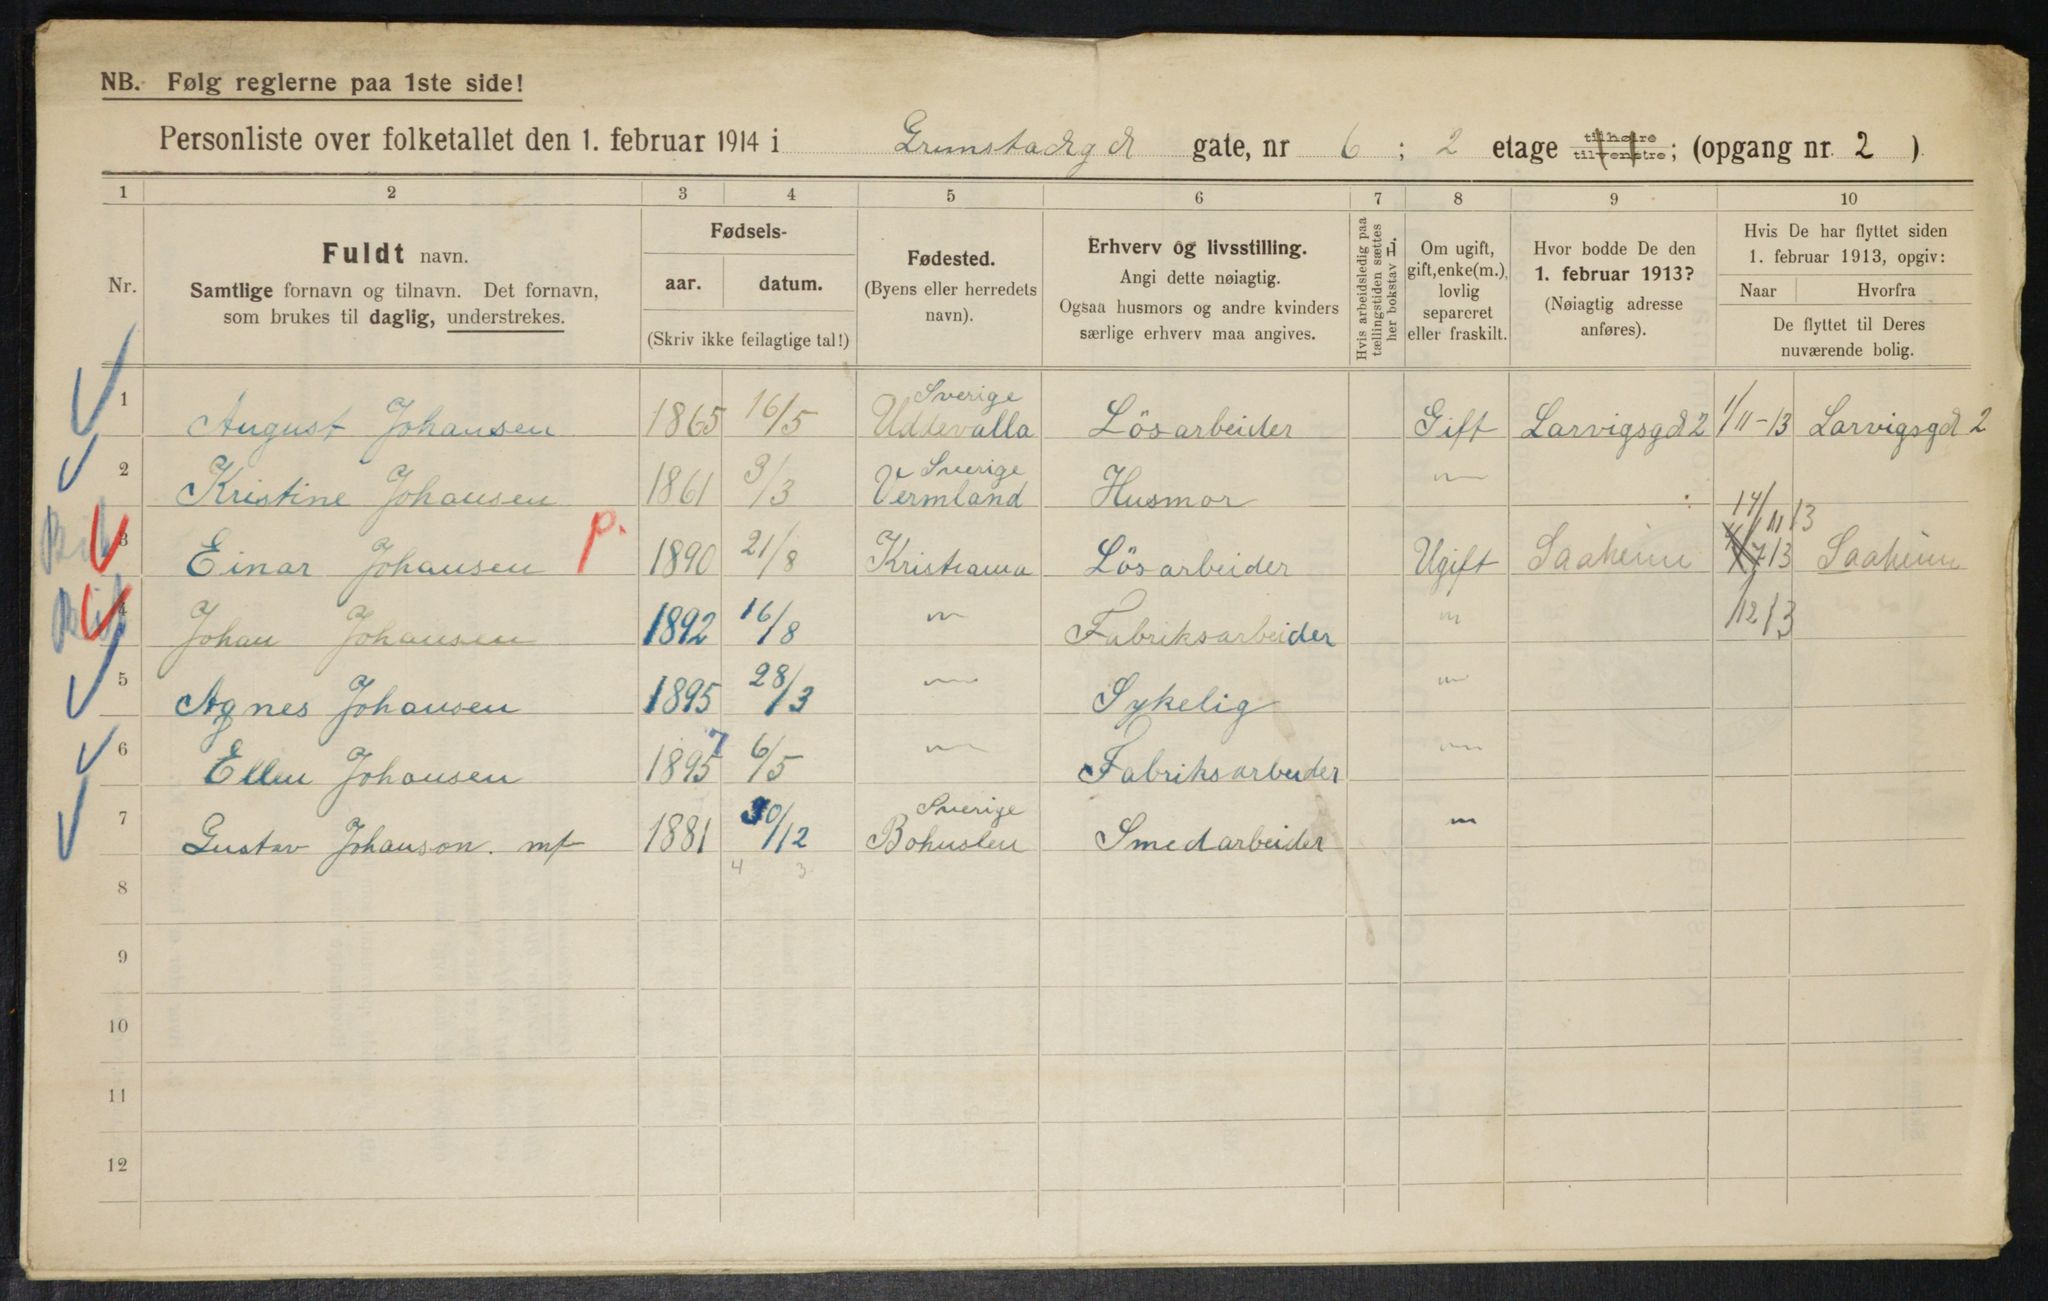 NB. Følg reglerne paa 1ste side!
Personliste over folketallet den 1. februar 1914 i Grimstadgd gate, nr 6 ; 2 etage tilhøire tilvenstre; (opgang nr. 2 )
1 2 3 4 5 6 7 8 9 10
Nr.
Fuldt navn.
Samtlige fornavn og tilnavn. Det fornavn,
som brukes til daglig, understrekes.
Fødsels-
aar. datum.
(Skriv ikke feilagtige tal!)
Fødested.
(Byens eller herredets
navn).
Erhverv og livsstilling.
Angi dette nøiagtig.
Ogsaa husmors og andre kvinders
særlige erhverv maa angives.
Hvis arbeidsledig paa
tællingstiden sættes
her bokstav L.
Om ugift,
gift, enke(m.),
lovlig
separeret
eller fraskilt.
Hvor bodde De den
1. februar 1913?
(Nøiagtig adresse
anføres).
Hvis De har flyttet siden
1. februar 1913, opgiv:
Naar Hvorfra
De flyttet til Deres
nuværende bolig.
1 August Johansen 1865 16/5 Sverige Uddevalla Lösarbeider Gift Larvigsgd 2 1/11-13 Larvigsgd 2
2 Kristine Johansen 1861 3/3 Sverige Vermland Husmor
3 Einar Johansen p. 1890 21/8 Kristiania Lösarbeider Ugift Saaheim 14/11 13 Saaheim
4 Johan Johansen 1892 16/8 " Fabriksarbeider " /12 13
5 Agnes Johansen 1895 28/3 " Sykelig "
6 Ellen Johansen 1895 7 6/5 " Fabriksarbeider "
7 Gustav Johanson. 1881 30/12 Sverige Bohuslen Smedarbeider "
4 3
8
9
10
11
12